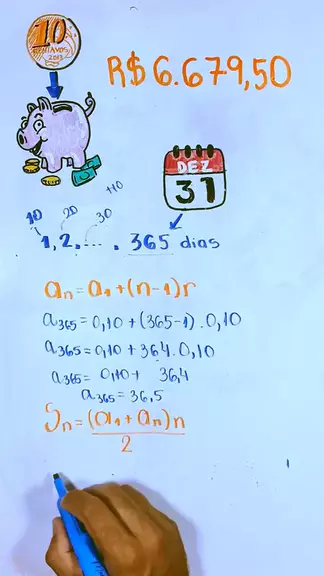 10
CENTAVOS
2013
R$ 6.679,50
DEZ
31
+10
10 20 30
1,2,... . 365 dias
an = a1 + (n-1)r
a365 = 0,10 + (365-1) . 0,10
a365 = 0,10 + 364 . 0,10
a365 = 0,10 + 36,4
a365 = 36,5
Sn = (a1 + an)n
2